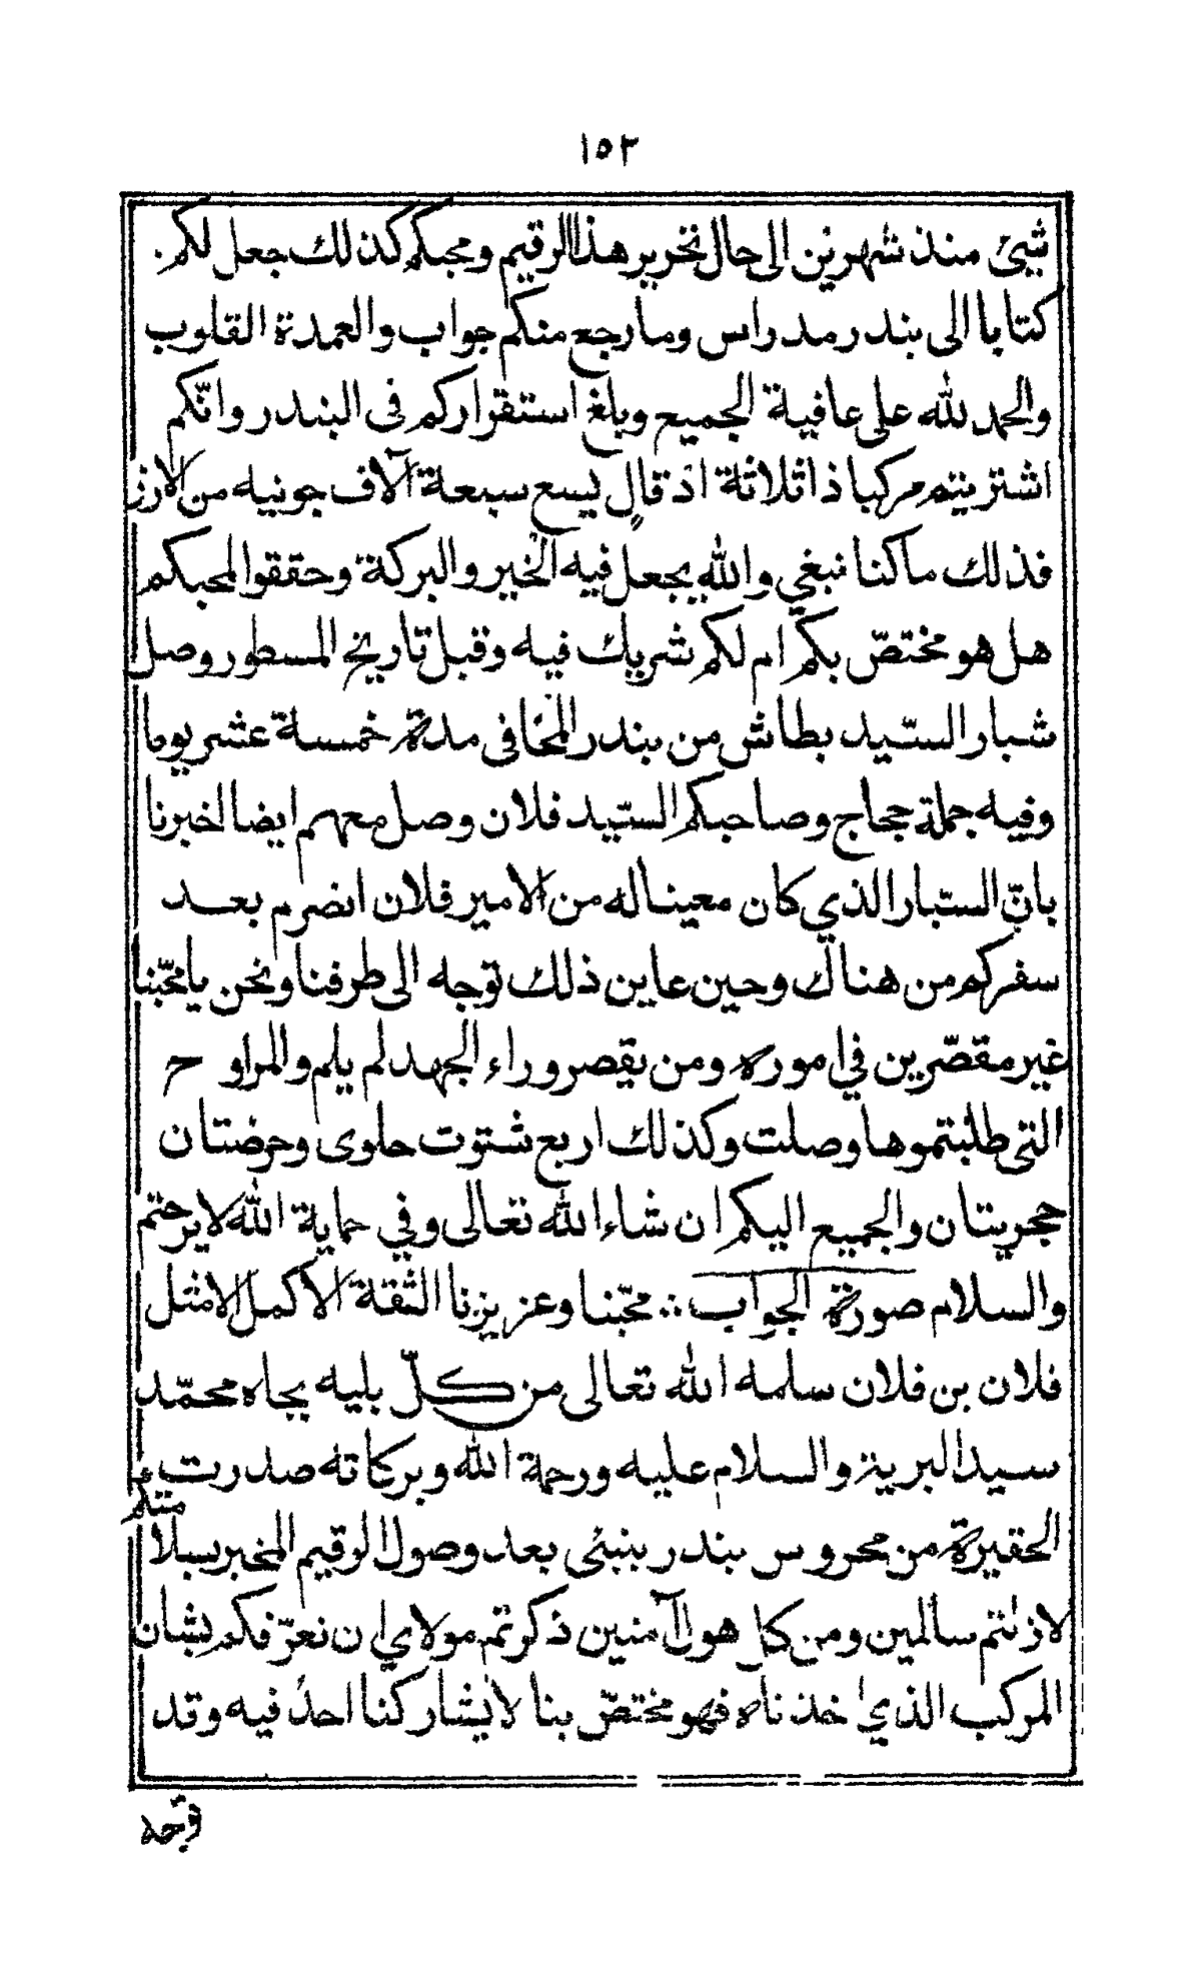 ١٥٣
شيئ منذ شهرين الى حال تحرير هذا الرقيم ومحبكم كذلك جعل لكم.
كتابا الى بندر مدراس وما رجع منكم جواب والعمدة القلوب
والحمد لله على عافية الجميع وبلغ استقراركم فى البندر وانّكم
اشتريتم مركبا ذا ثلاثة ادقال يسع سبعة آلاف جونيه من الارز
فذلك ما كنا نبغي والله يجعل فيه الخير والبركة وحققوا لمحبكم
هل هو مختصّ بكم ام لكم شريك فيه وقبل تاريخ المسطور وصل
شبار السيّد بطاش من بندر المخا فى مدة خمسة عشر يوما
وفيه جملة حجاج وصاحبكم السيّد فلان وصل معهم ايضا اخبرنا
بانّ السبّار الذي كان معيناله من الامير فلان انصرم بعد
سفركم من هناك وحين عاين ذلك توجه الى طرفنا ونحن يا محبّنا
غير مقصّرين في اموره ومن يقصر وراء الجهد لم يلم والمراوح
التى طلبتموها وصلت وكذلك اربع شتوت حلوى وحرضتان
حجريتان والجميع اليكم ان شاء الله تعالى وفي حماية الله لا برحتم
والسلام صورة الجواب ∴ محبّنا وعزيزنا الثقة الاكمل الامثل
فلان بن فلان سلمه الله تعالى من كلّ بليه بجاه محمّد
سيد البرية والسلام عليه ورحمة الله وبركاته صدرت
الحقيرة من محروس بندر بنبئى بعد وصول الرقيم المخبر بسلامتكم
لازلتم سالمين ومن كل هول آمنين ذكرتم مولاي ان نعرّفكم بشان
المركب الذي اخذناه فهو مختصّ بنا لايشاركنا احد فيه وقد
وجه